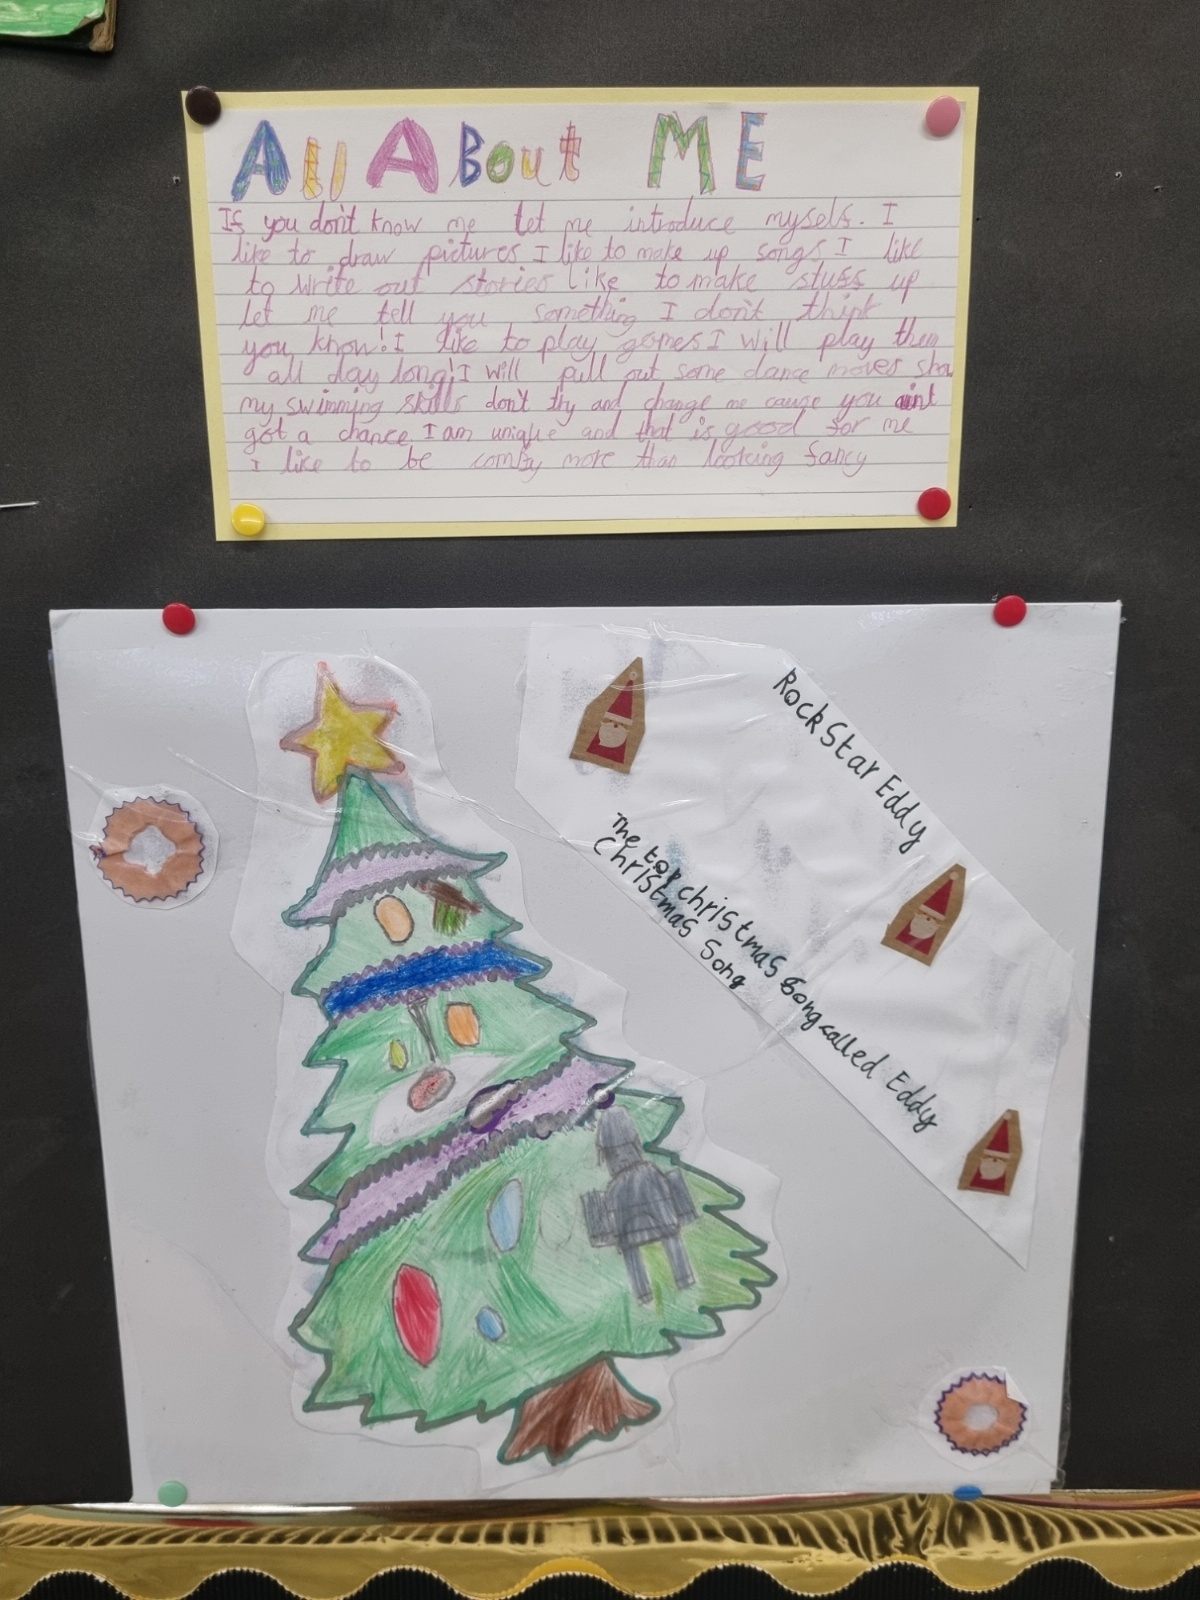 All About ME
If you don't know me let me introduce myself. I
like to draw pictures I like to make up songs I like
to write out stories like to make stuff up
let me tell you something I don't think
you know! I like to play games I will play them
all day long! I will pull out some dance moves show
my swimming skills don't try and change me cause you aint
got a chance. I am unique and that is good for me
I like to be comfy more than looking fancy
RockStar Eddy
The top christmas song called Eddy
Christmas Song